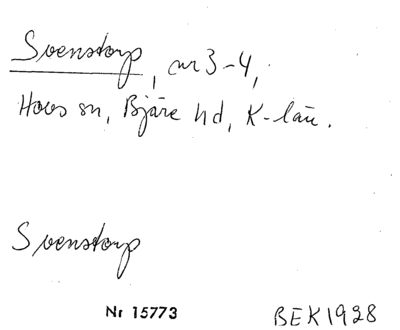 Svenstorp, nr 3-4,
Hovs sn, Bjäre hd, K-län.
Svenstorp
Nr 15773 BEK 1928